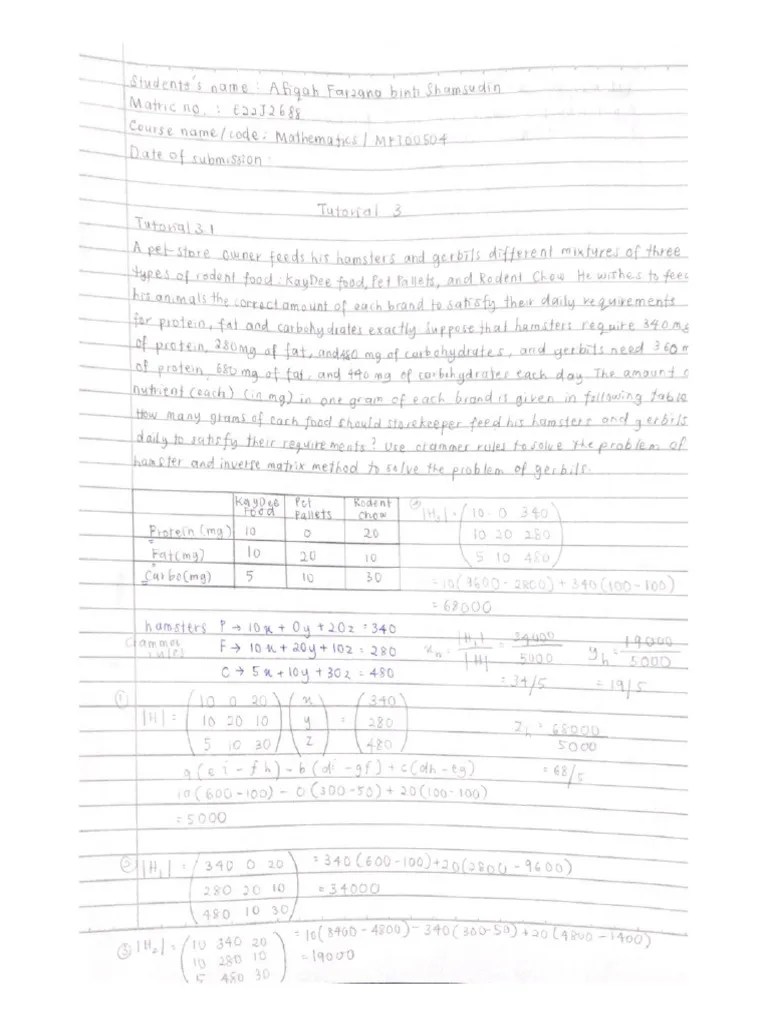 Students's name : Afiqah Farzana binti Shamsudin
Matric no. : E22J2688
Course name/code: Mathematics/ MFI00504
Date of submission :
Tutorial 3
Tutorial 3.1
A pet-store owner feeds his hamsters and gerbils different mixtures of three
types of rodent food : KayDee food, Pet Pallets, and Rodent Chow He wishes to feed
his animals the correct amount of each brand to satisfy their daily requirements
for protein, fat and carbohydrates exactly suppose that hamsters require 340 mg
of protein, 280mg of fat, and 480 mg of carbohydrates, and gerbils need 360 m
of protein, 680 mg of fat, and 440 mg of carbohydrates each day. The amount o
nutrient (each) (in mg) in one gram of each brand is given in following table
How many grams of each food should storekeeper feed his hamsters and gerbils
daily to satisfy their requirements? Use crammer rules to solve the problem of
hamster and inverse matrix method to solve the problem of gerbils.
KayDee Food Pet Pallets Rodent Chow
Protein (mg) 10 0 20
Fat(mg) 10 20 10
Carbo(mg) 5 10 30
④ |H₃| = (10 0 340
10 20 280
5 10 480)
= 10(9600-2800) + 340(100-100)
= 68000
hamsters P → 10x + 0y + 20z = 340
Crammer rule) F → 10x + 20y + 10z = 280
C → 5x + 10y + 30z = 480
xₕ = |H₁| / |H| = 34000 / 5000
= 34/5
yₕ = 19000 / 5000
= 19/5
zₕ = 68000 / 5000
= 68/5
① |H| = (10 0 20) (x) = (340)
(10 20 10) (y) (280)
(5 10 30) (z) (480)
a(ei - fh) - b(di - gf) + c(dh - eg)
10(600-100) - 0(300-50) + 20(100-100)
= 5000
② |H₁| = (340 0 20) = 340(600-100)+20(2800-9600)
(280 20 10) = 34000
(480 10 30)
③ |H₂| = (10 340 20) = 10(8400-4800) - 340(300-50) + 20(4800-1400)
(10 280 10) = 19000
(5 480 30)